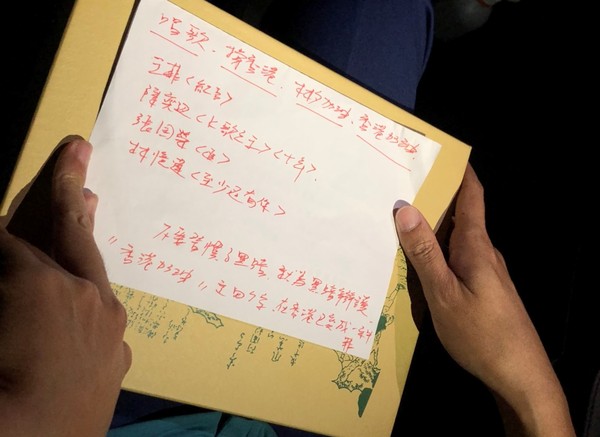 唱歌、撐香港、林夕加油、香港加油
王菲〈紅豆〉
陳奕迅〈K歌之王〉〈十年〉.
張國榮〈追〉
林憶蓮〈至少還有你〉
不要習慣了黑暗就為黑暗辯護
"香港加油"這四个字,在香港已變成一种
罪